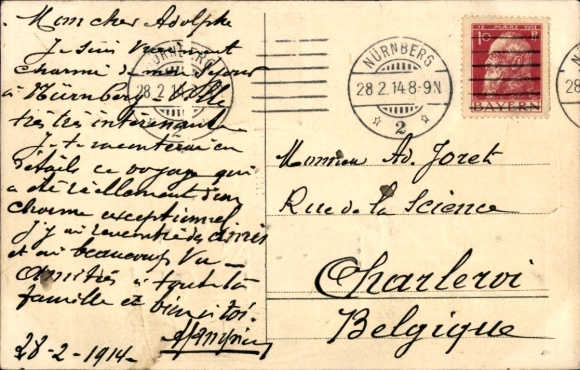 Mon cher Adolphe
Je suis vraiment
charmé de mon séjour
à Nürnberg - Ville
très très intéressante
Je te raconterai en
détails ce voyage qui
a été réellement d'un
charme exceptionnel
J'y ai rencontré des
et ai beaucoup vu -
Amitiés à toute ta
famille et bien à toi.
28-2-1914-
NÜRNBERG
28.2.14
NÜRNBERG
28.2.14 8-9N
2
12 MÄRZ 1911
10 P
BAYERN
Monsieur Ad. Joret
Rue de la Science
Charleroi
Belgique